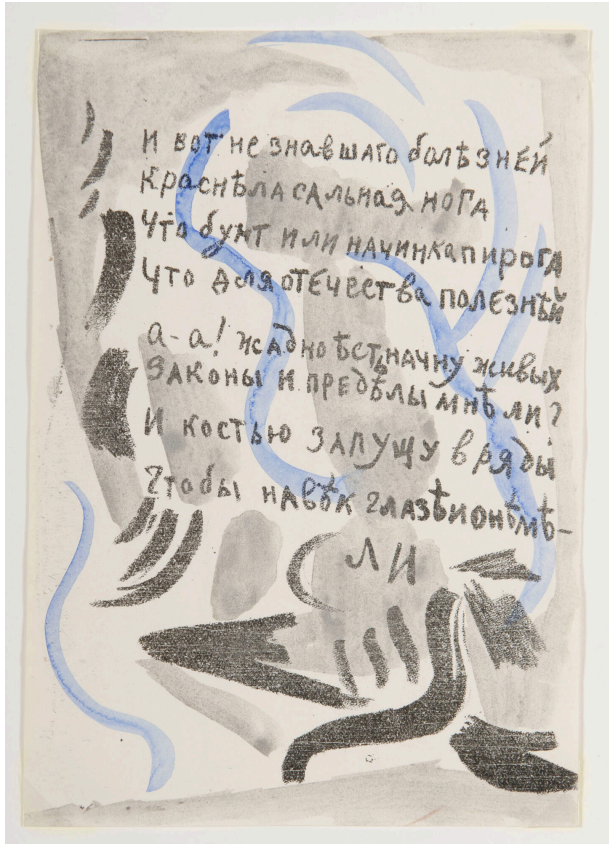 и вот не знавшаго болѣзней
Краснѣла сальная нога
Что бунт или начинка пирога
Что для отечества полезнѣй
а-а! жадно ѣсть начну живых
Законы и пределы мнѣ ли?
И костью запущу в ряды
Чтобы навѣк глазѣи онѣмѣ-
ли